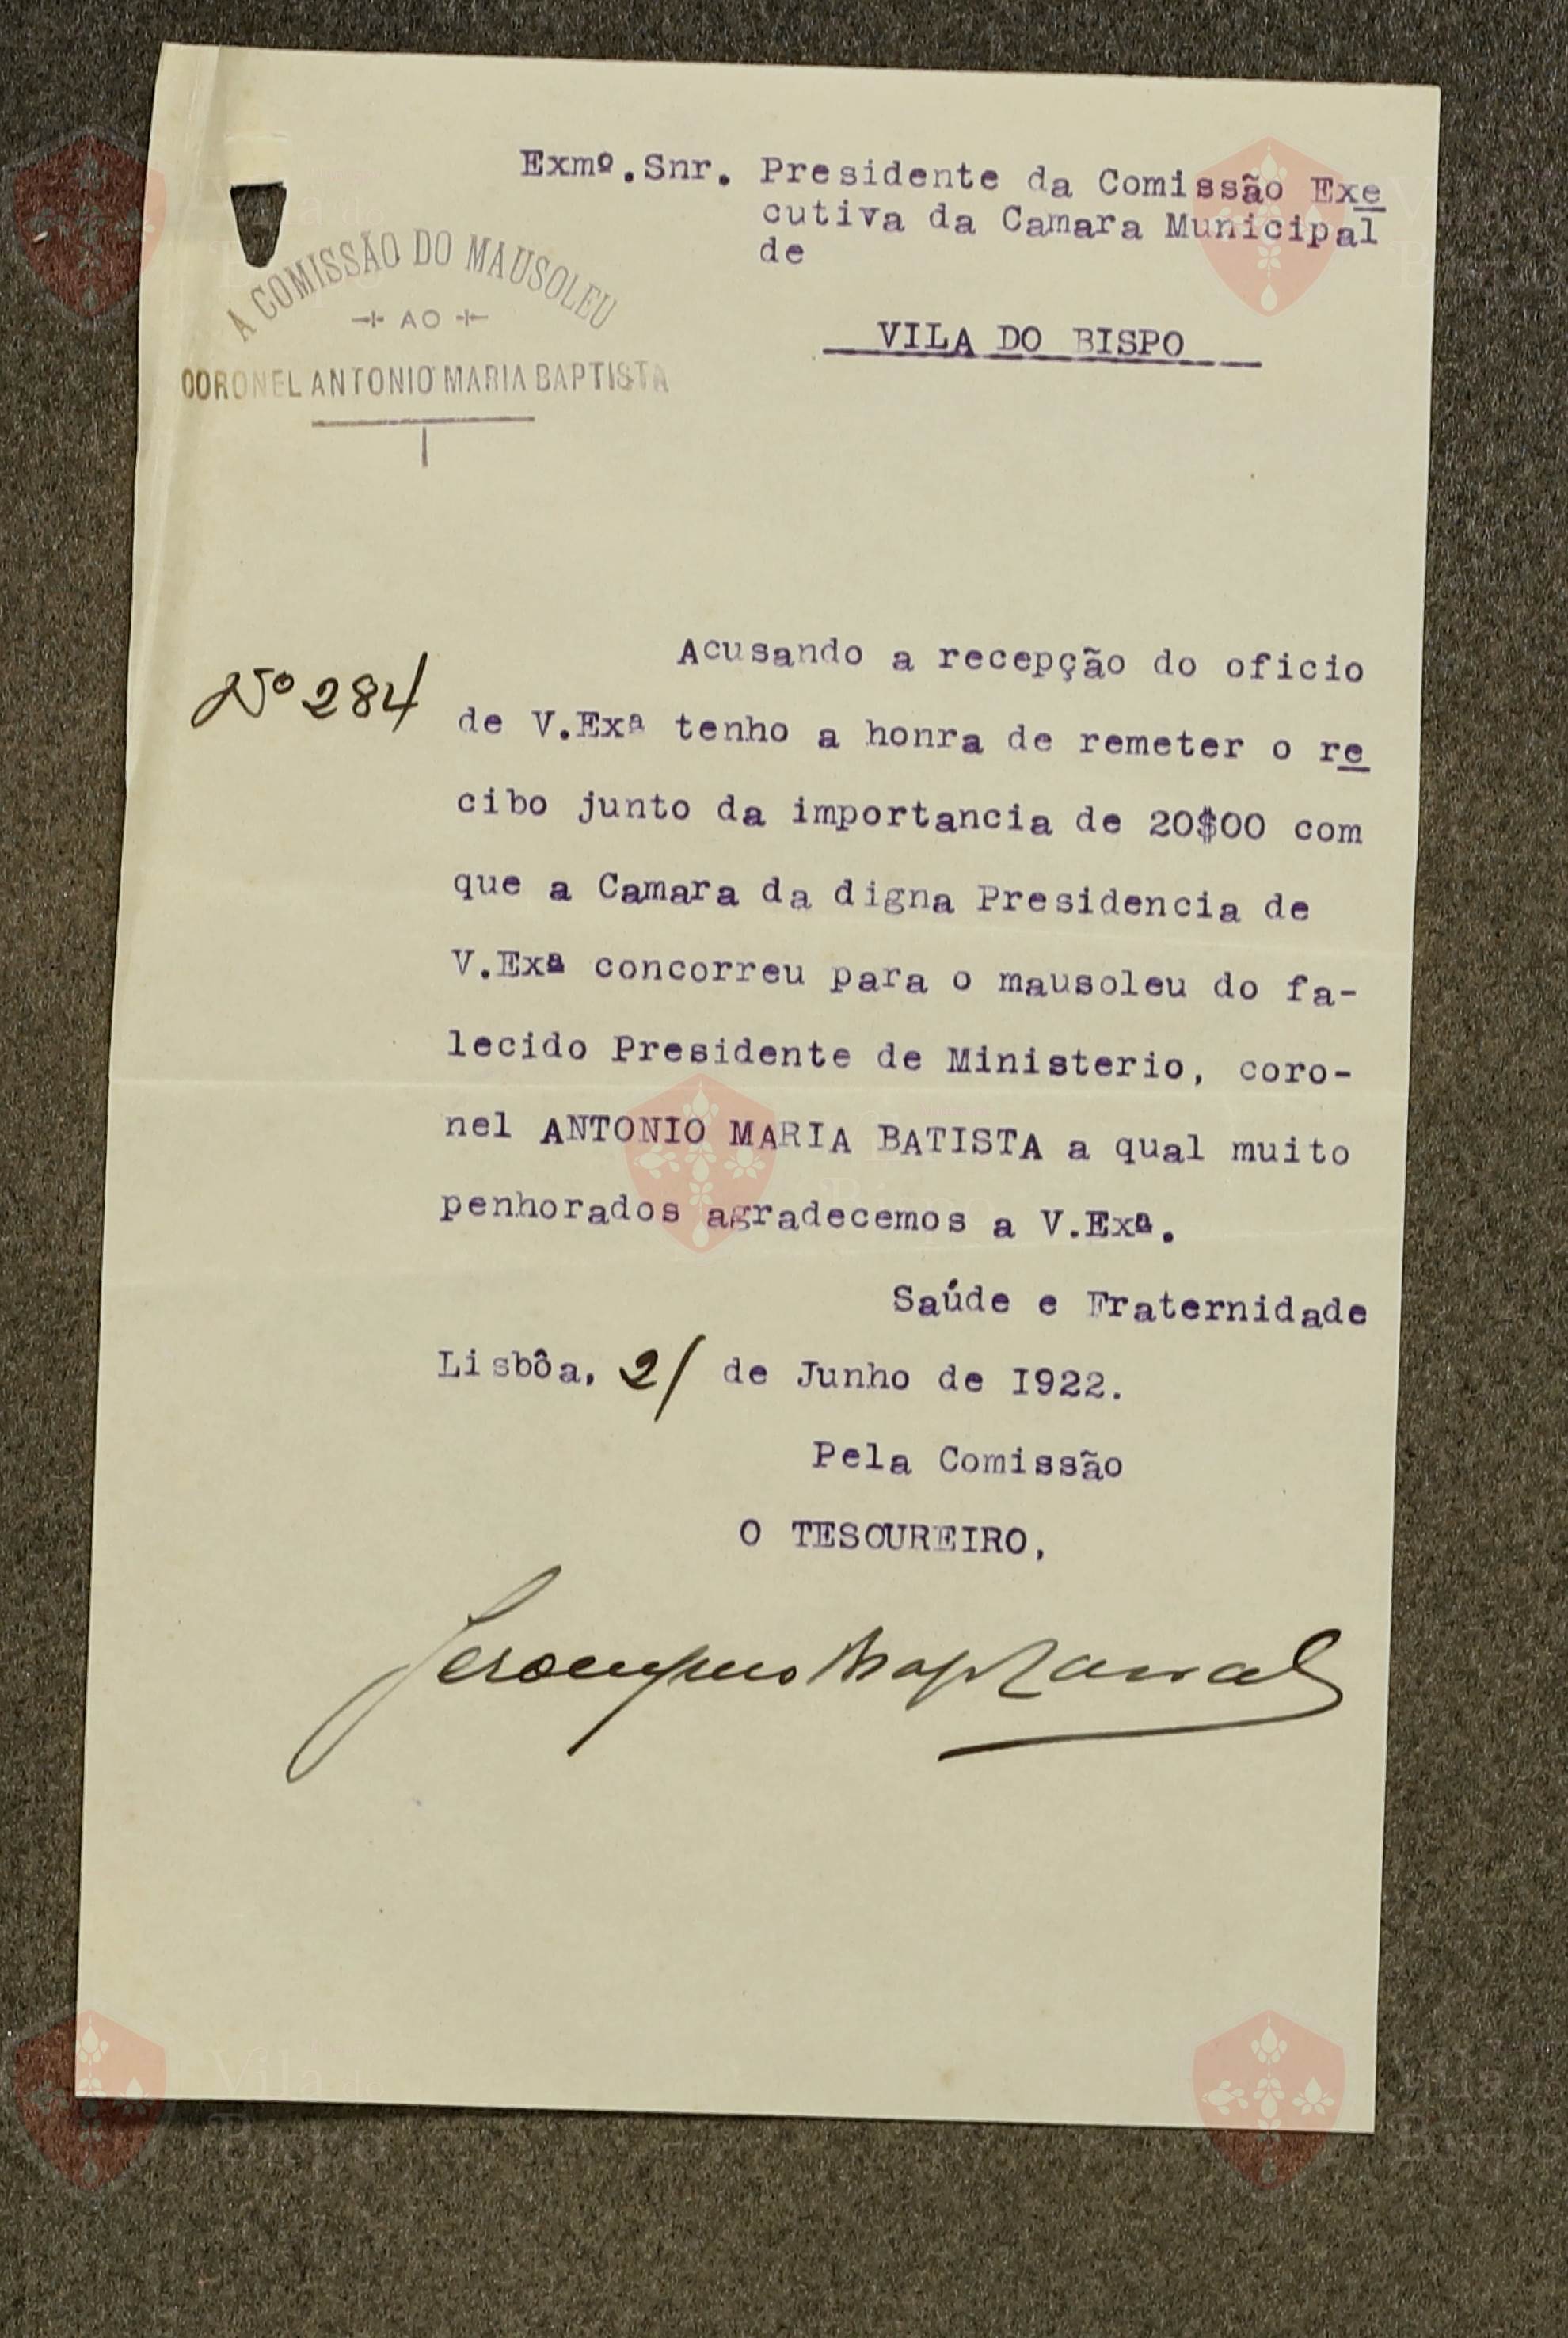 Exmº.Snr. Presidente da Comissão Exe
cutiva da Camara Municipal
de
VILA DO BISPO
A COMISSÃO DO MAUSOLEU
AO
CORONEL ANTONIO MARIA BAPTISTA
Nº 284
Acusando a recepção do oficio
de V.Exª tenho a honra de remeter o re
cibo junto da importancia de 20$00 com
que a Camara da digna Presidencia de
V.Exª concorreu para o mausoleu do fa-
lecido Presidente de Ministerio, coro-
nel ANTONIO MARIA BATISTA a qual muito
penhorados agradecemos a V.Exª.
Saúde e Fraternidade
Lisbôa, 21 de Junho de I922.
Pela Comissão
O TESOUREIRO,